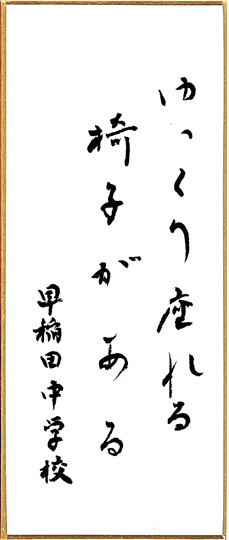 ゆっくり座れる
椅子がある
早稲田中学校